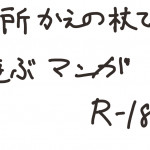 所かえの杖で
遊ぶマンガ
R-18